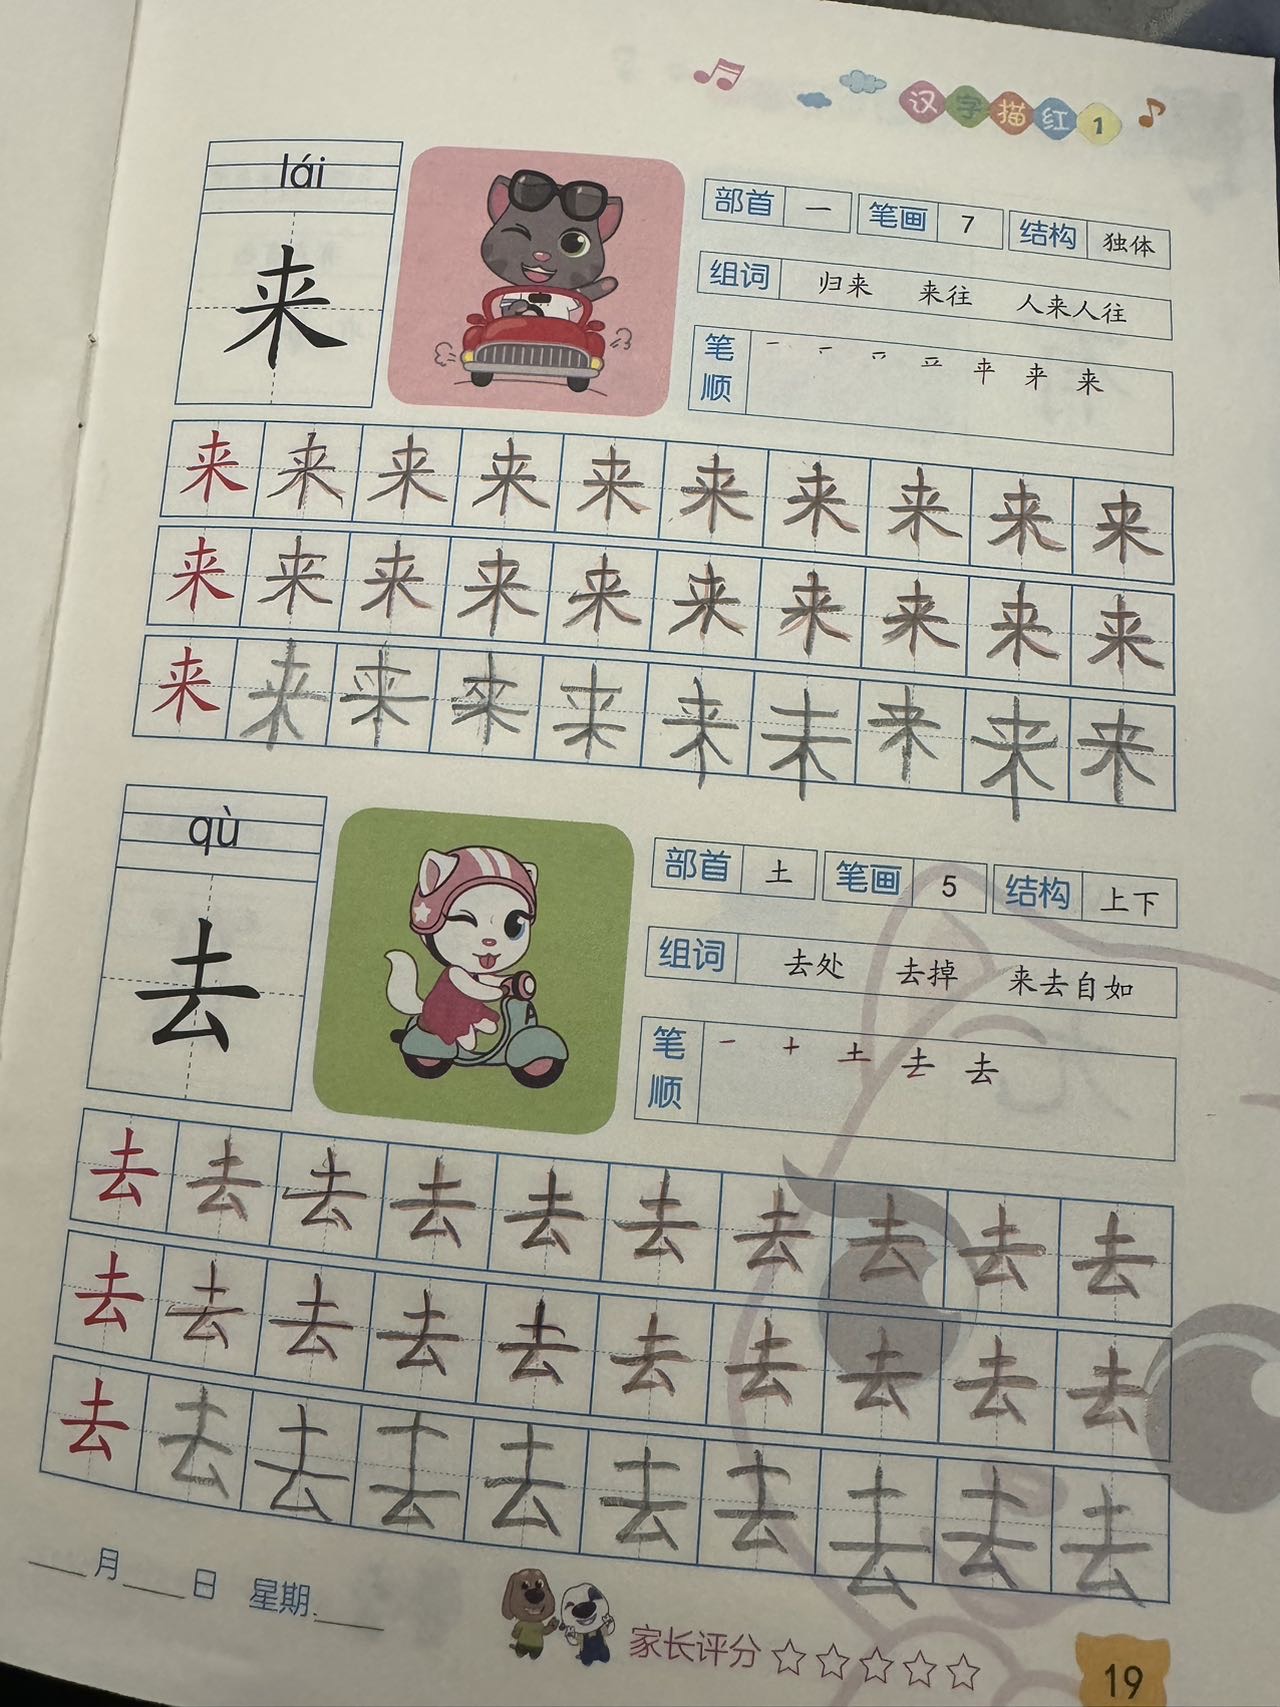 汉字描红1
lái
来
部首 一 笔画 7 结构 独体
组词 归来 来往 人来人往
笔顺 来
来 来 来 来 来 来 来 来 来 来
来 来 来 来 来 来 来 来 来 来
来 来 来 来 来 来 未 来 来 来
qù
去
部首 土 笔画 5 结构 上下
组词 去处 去掉 来去自如
笔顺 一 十 土 去
去 去 去 去 去 去 去 去 去 去
去 去 去 去 去 去 去 去 去 去
去 去 去 去 去 去 去 去 去 去
____月____日 星期____
家长评分☆☆☆☆☆
19